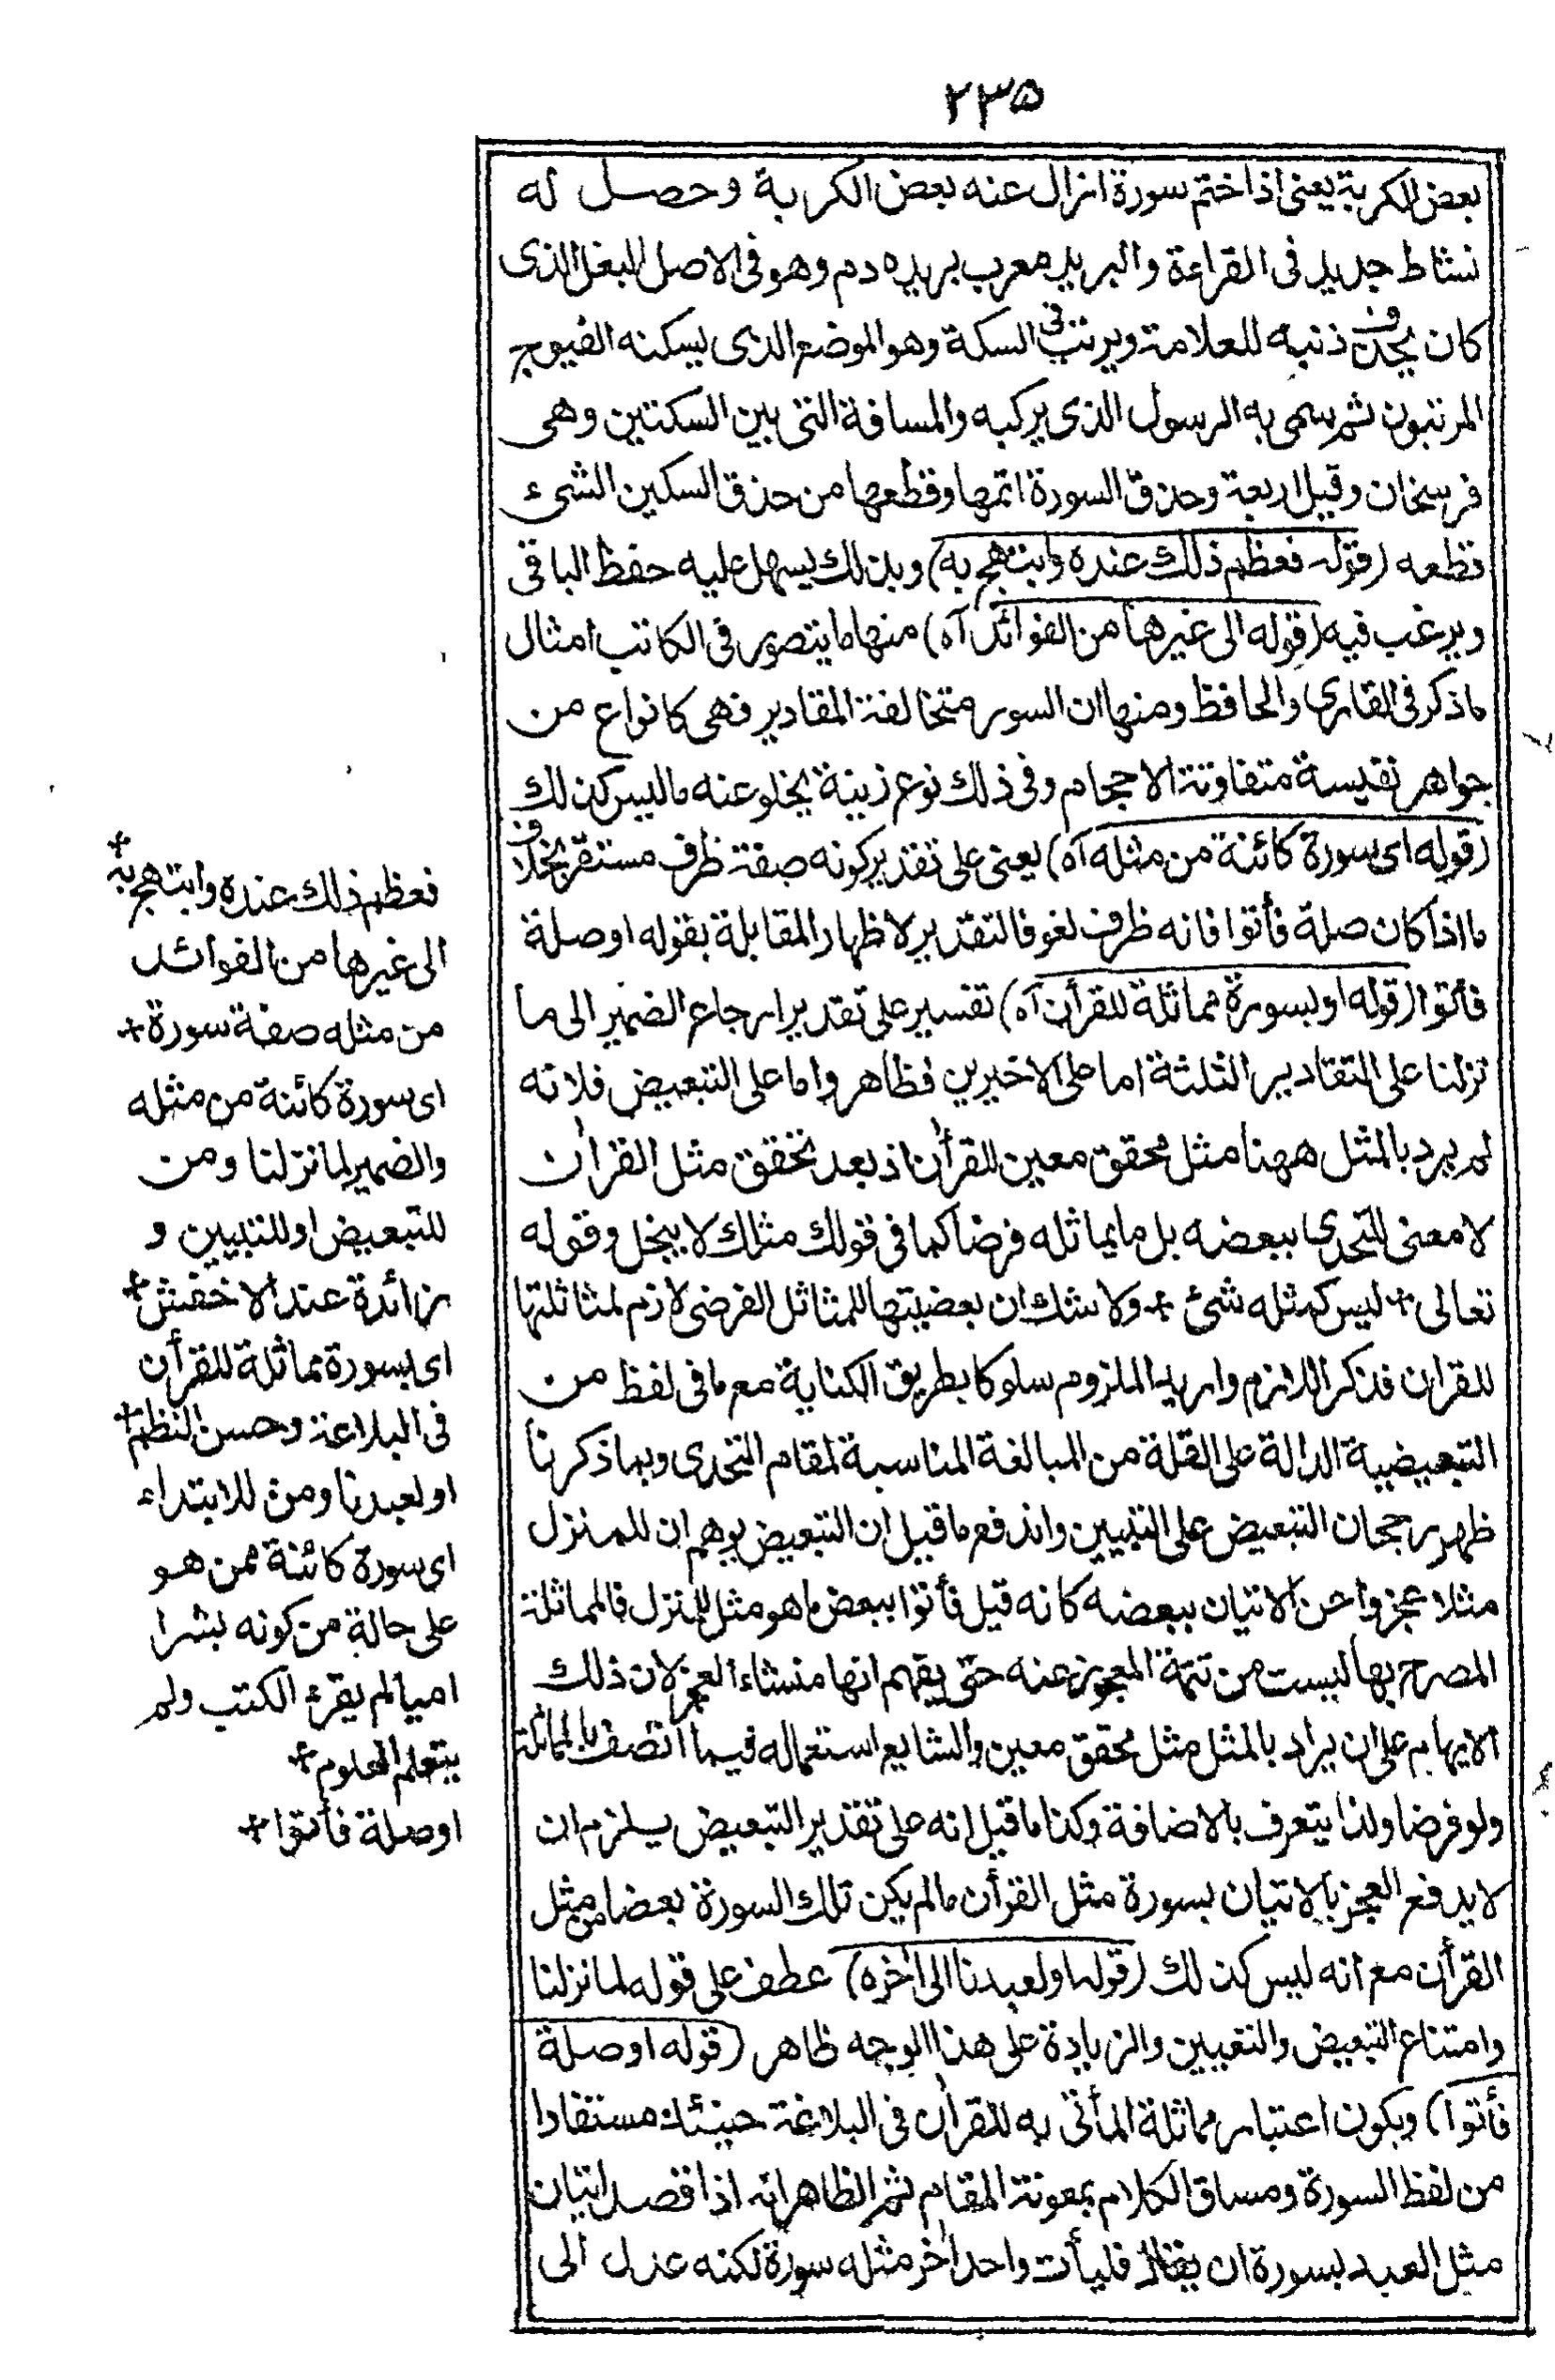 ٢٣٥
بعض الكربة يعنى اذا ختم سورة ازال عنه بعض الكربة وحصل له
نشاط جديد فى القراءة والبريد معرب بريده دم وهو فى الاصل البغل الذى
كان يحذف ذنبه للعلامة ويرتب فى السكة وهو الموضع الذى يسكنه الفيوج
المرتبون ثم سمى به الرسول الذى يركبه والمسافة التى بين السكتين وهى
فرسخان وقيل اربعة وحذق السورة اتمها وقطعها من حذق السكين الشىء
قطعه (قوله فعظم ذلك عنده وابتهج به) وبذلك يسهل عليه حفظ الباقى
ويرغب فيه (قوله الى غيرها من الفوائد آه) منها ما يتصور فى الكاتب امثال
ما ذكر فى القارى والحافظ ومنها ان السور متخالفة المقادير فهى كانواع من
جواهر نفيسة متفاوتة الاحجام وفى ذلك نوع زينة يخلو عنه ما ليس كذلك
(قوله اى سورة كائنة من مثله آه) يعنى على تقدير كونه صفة ظرف مستقر بخلاف
ما اذا كان صلة فأتوا فانه ظرف لغو فالتقدير لاظهار المقابلة بقوله او صلة
فأتوا (قوله او بسورة مماثلة للقرأن آه) تفسير على تقدير ارجاع الضمير الى ما
نزلنا على التقادير الثلثة اما على الاخيرين فظاهر واما على التبعيض فلانه
لم يرد بالمثل ههنا مثل محقق معين للقرأن اذ بعد تحقق مثل القرأن
لا معنى للتحدى ببعضه بل ما يماثله فرضا كما فى قولك مثلك لا يبخل وقوله
تعالى + ليس كمثله شئ + ولا شك ان بعضيتها للمماثل الفرضى لازم لمماثلتها
للقران فذكر اللازم واريد الملزوم سلوكا بطريق الكناية مع ما فى لفظ من
التبعيضية الدالة على القلة من المبالغة المناسبة لمقام التحدى وبما ذكرنا
ظهر رجحان التبعيض على التبيين واندفع ما قيل ان التبعيض يوهم ان للمنزل
مثلا عجزوا عن الاتيان ببعضه كانه قيل فأتوا ببعض ما هو مثل للمنزل فالمماثلة
المصرح بها ليست من تتمة المعجوز عنه حتى يفهم انها منشاء العجز لان ذلك
الايهام على ان يراد بالمثل مثل محقق معين والشايع استعماله فيما اتصف بالمماثلة
ولو فرضا ولذا يتعرف بالاضافة وكذا ما قيل انه على تقدير التبعيض يلزم ان
لا يدفع العجز بالاتيان بسورة مثل القرأن ما لم يكن تلك السورة بعضا من مثل
القرأن مع انه ليس كذلك (قوله او لعبدنا الى أخره) عطف على قوله لما نزلنا
وامتناع التبعيض والتعيين والزيادة على هذا الوجه ظاهر (قوله او صلة
فأتوا) ويكون اعتبار مماثلة المأتى به للقرأن فى البلاغة حينئذ مستفادا
من لفظ السورة ومساق الكلام بمعونة المقام ثم الظاهر انه اذا قصد اتيان
مثل العبد بسورة ان يقال فليأت واحد أخر مثله سورة لكنه عدل الى
فعظم ذلك عنده وابتهج به +
الى غيرها من الفوائد
من مثله صفة سورة +
اى سورة كائنة من مثله
والضمير لما نزلنا ومن
للتبعيض او للتبيين و
زائدة عند الاخفش +
اى بسورة مماثلة للقرأن
فى البلاغة وحسن النظم +
او لعبدنا ومن للابتداء
اى سورة كائنة ممن هو
على حالة من كونه بشرا
اميا لم يقرء الكتب ولم
يتعلم العلوم +
او صلة فأتوا +